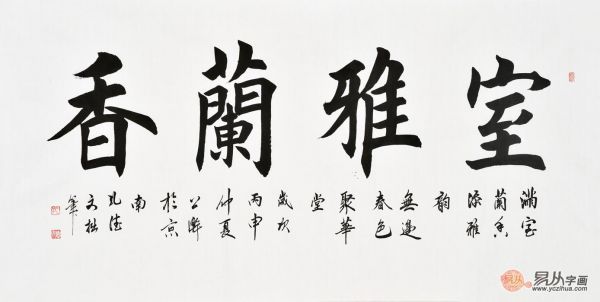 室雅蘭香
滿室
蘭香
添雅
韻
無邊
春色
聚華
堂
歲次
丙申
仲夏
於京
南
筆
易从字画
www.yczihua.com